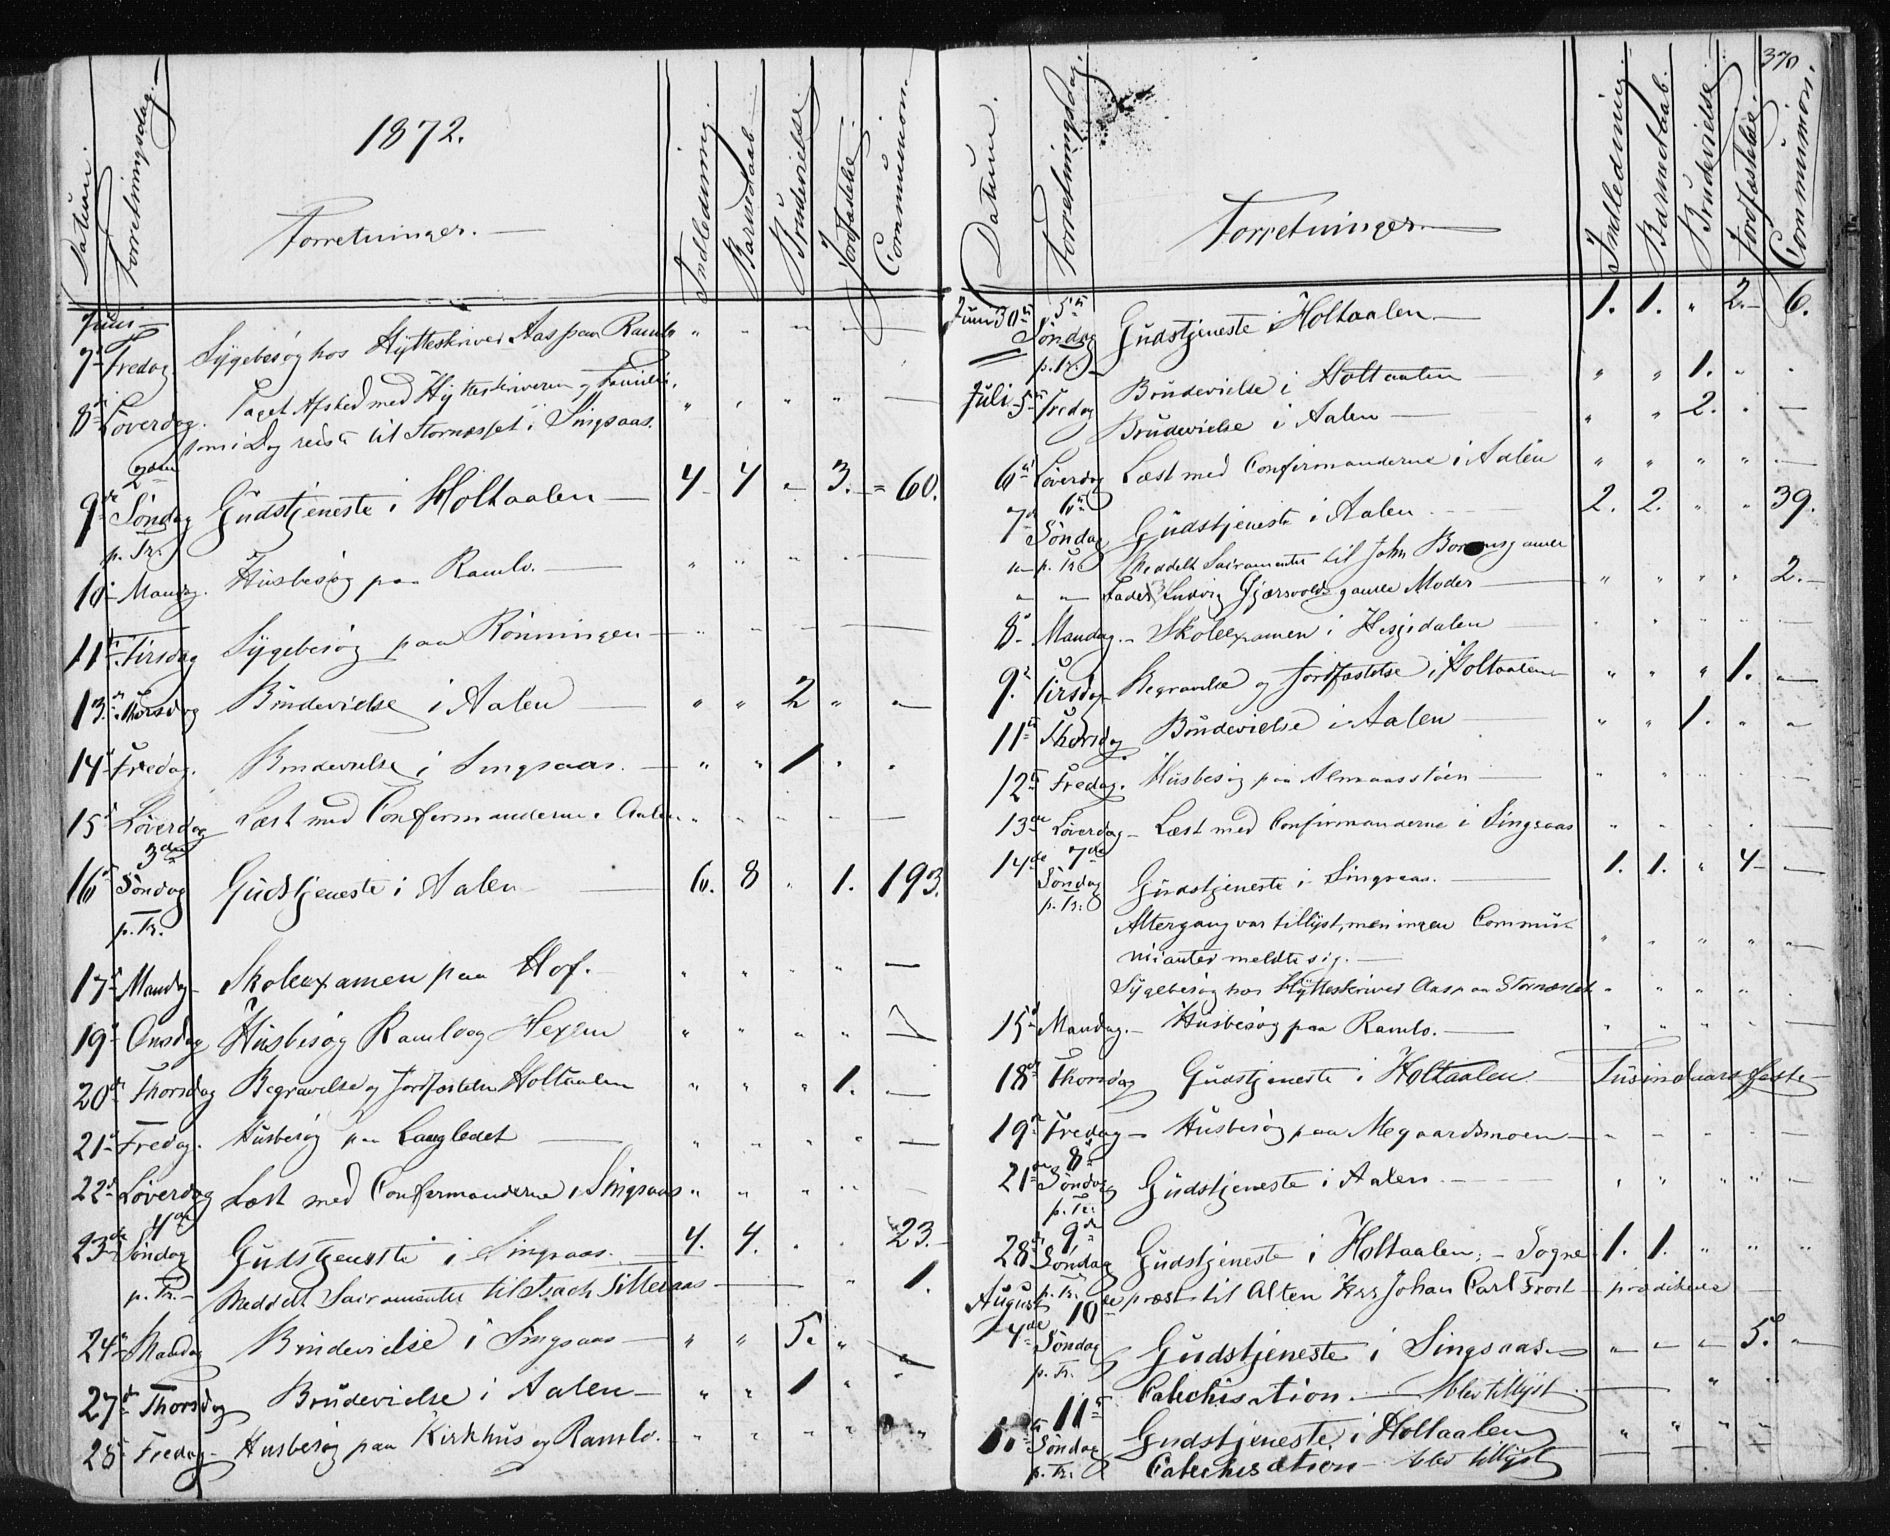 1872.
Datum. Forretningsdag. Forretninger. Indledning Barnedaab Brudevielse Jordfæstelse Communion.
Juni
7de Fredag Sygebesøg hos Hytteskriver Aas paa Ramlo " " " " —
8de Løverdag. Taget Afsked med Hytteskriveren og Familie, " " " " —
som i Dag reiste til Stornæsset i Singsaas.
2den
9de Søndag Gudstjeneste i Holtaalen — 4 4 " 3. 60.
p. Tr.
10 Mandag. Husbesøg paa Ramlo. — " " " " —
11te Tirsdag Sygebesøg paa Rønningen — " " " " —
13de Thorsdag Brudevielse i Aalen — " " 2 " "
14de Fredag. Brudevielse i Singsaas. — " " 1 " "
15de Løverdag Læst med Confirmanderne i Aalen " " " " —
3die
16de Søndag Gudstjeneste i Aalen — 6. 8 " 1. 193.
p. Tr.
17de Mandag Skoleexamen paa Hof. " " " " —
19de Onsdag Husbesøg Ramlo og Hexem " " " " —
20de Thorsdag Begravelse og Jordfæstelse Holtaalen " " " 1. —
21de Fredag. Husbesøg paa Langledet — " " " " —
22de Løverdag Læst med Confirmanderne i Singsaas " " " " —
4de
23de Søndag Gudstjeneste i Singsaas. — 4. 4. " " 23.
p. Tr. Meddelt Sacramentet til — " 1.
24de Mandag Brudevielse i Singsaas — " " 5. " "
27de Thorsdag Brudevielse i Aalen — " " 1 " "
28de Fredag Husbesøg paa Kirkhus og Ramlo. " " " " "
370
Datum. Forretningsdag. Forretninger. Indledning. Barnedaab. Brudevielse. Jordfæstelse. Communion.
Juni 30te 5te Søndag Gudstjeneste i Holtaalen — 1. 1. " 2. 6.
p. Tr.
Brudevielse i Holtaalen — " " 1. " "
Juli 5te Fredag Brudevielse i Aalen — " " 2. " —
6te Løverdag Læst med Confirmanderne i Aalen " " " " —
7de 6te Søndag Gudstjeneste i Aalen. — 2. 2. " " 39.
" p. Tr. Meddelt Sacramentet til John gamle
" " Fader & Ludvig Gjærsvolds gamle Moder — " " " " 2.
8de Mandag. — Skoleexamen i Hesjedalen — " " " " —
9de Tirsdag Begravelse og Jordfæstelse i Holtaalen " " " 1. —
11te Thorsdag Brudevielse i Aalen — " " 1. " "
12te Fredag. Husbesøg paa Almaasstøen — " " " " —
13de Løverdag — Læst med Confirmanderne i Singsaas " " " " —
14de 7de
Søndag Gudstjeneste i Singsaas. — 1. 1. " 4 —
p. Tr.
Altergang var tillyst, men ingen Commu-
nicanter meldte sig. — " " " " —
Sygebesøg hos Hytteskriver Aas paa Stornæsset " " " " —
15de Mandag. — Husbesøg paa Ramlo. — " " " " —
18de Thorsdag Gudstjeneste i Holtaalen — Tusindaarsfeste —
19de Fredag — Husbesøg paa Megaardsmoen — " " " " —
21de 8de Søndag Gudstjeneste i Aalen — " " " " "
p. Tr.
28de 9de Søndag Gudstjeneste i Holtaalen. — Sogne 1. 1. " " "
p. Tr. præst til Alten Hrr Johan Carl Frost — prædikede
August
4de 10de Søndag Gudstjeneste i Singsaas. " " " 5. "
p. Tr. Catechisation. — blev tillyst. — "
11te Søndag Gudstjeneste i Holtaalen " " " "
p. Tr. Catechisation — blev tillyst —